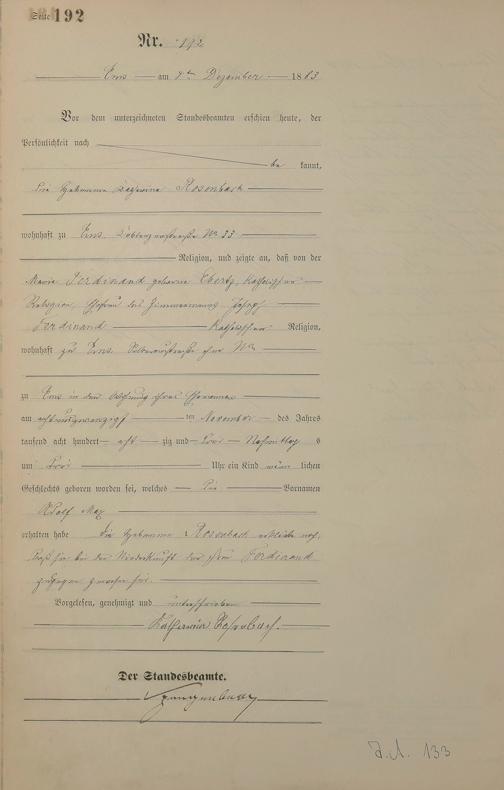 Seite 192
Nr. 192
Ems am 4ten Dezember 1883
Vor dem unterzeichneten Standesbeamten erschien heute, der
Persönlichkeit nach
be kannt,
die Hebamme Katharina Rosenbach
wohnhaft zu Ems Coblenzerstraße No 33
Religion, und zeigte an, daß von der
Maria Ferdinand geborene Ebertz, katholischer
Religion, Ehefrau des Zimmermanns Joseph
Ferdinand katholischer Religion,
wohnhaft zu Ems, Silberaustraße ohne No
zu Ems in der Wohnung ihres Ehemannes
am achtundzwanzigsten November des Jahres
tausend acht hundert acht zig und drei Nachmittags
um drei Uhr ein Kind männ lichen
Geschlechts geboren worden sei, welches die Vornamen
Adolf Max
erhalten habe Die Hebamme Rosenbach erklärte noch,
daß sie bei der Niederkunft der Ferdinand
zugegen gewesen sei.
Vorgelesen, genehmigt und unterschrieben
Katharina Rosenbach.
Der Standesbeamte.
133